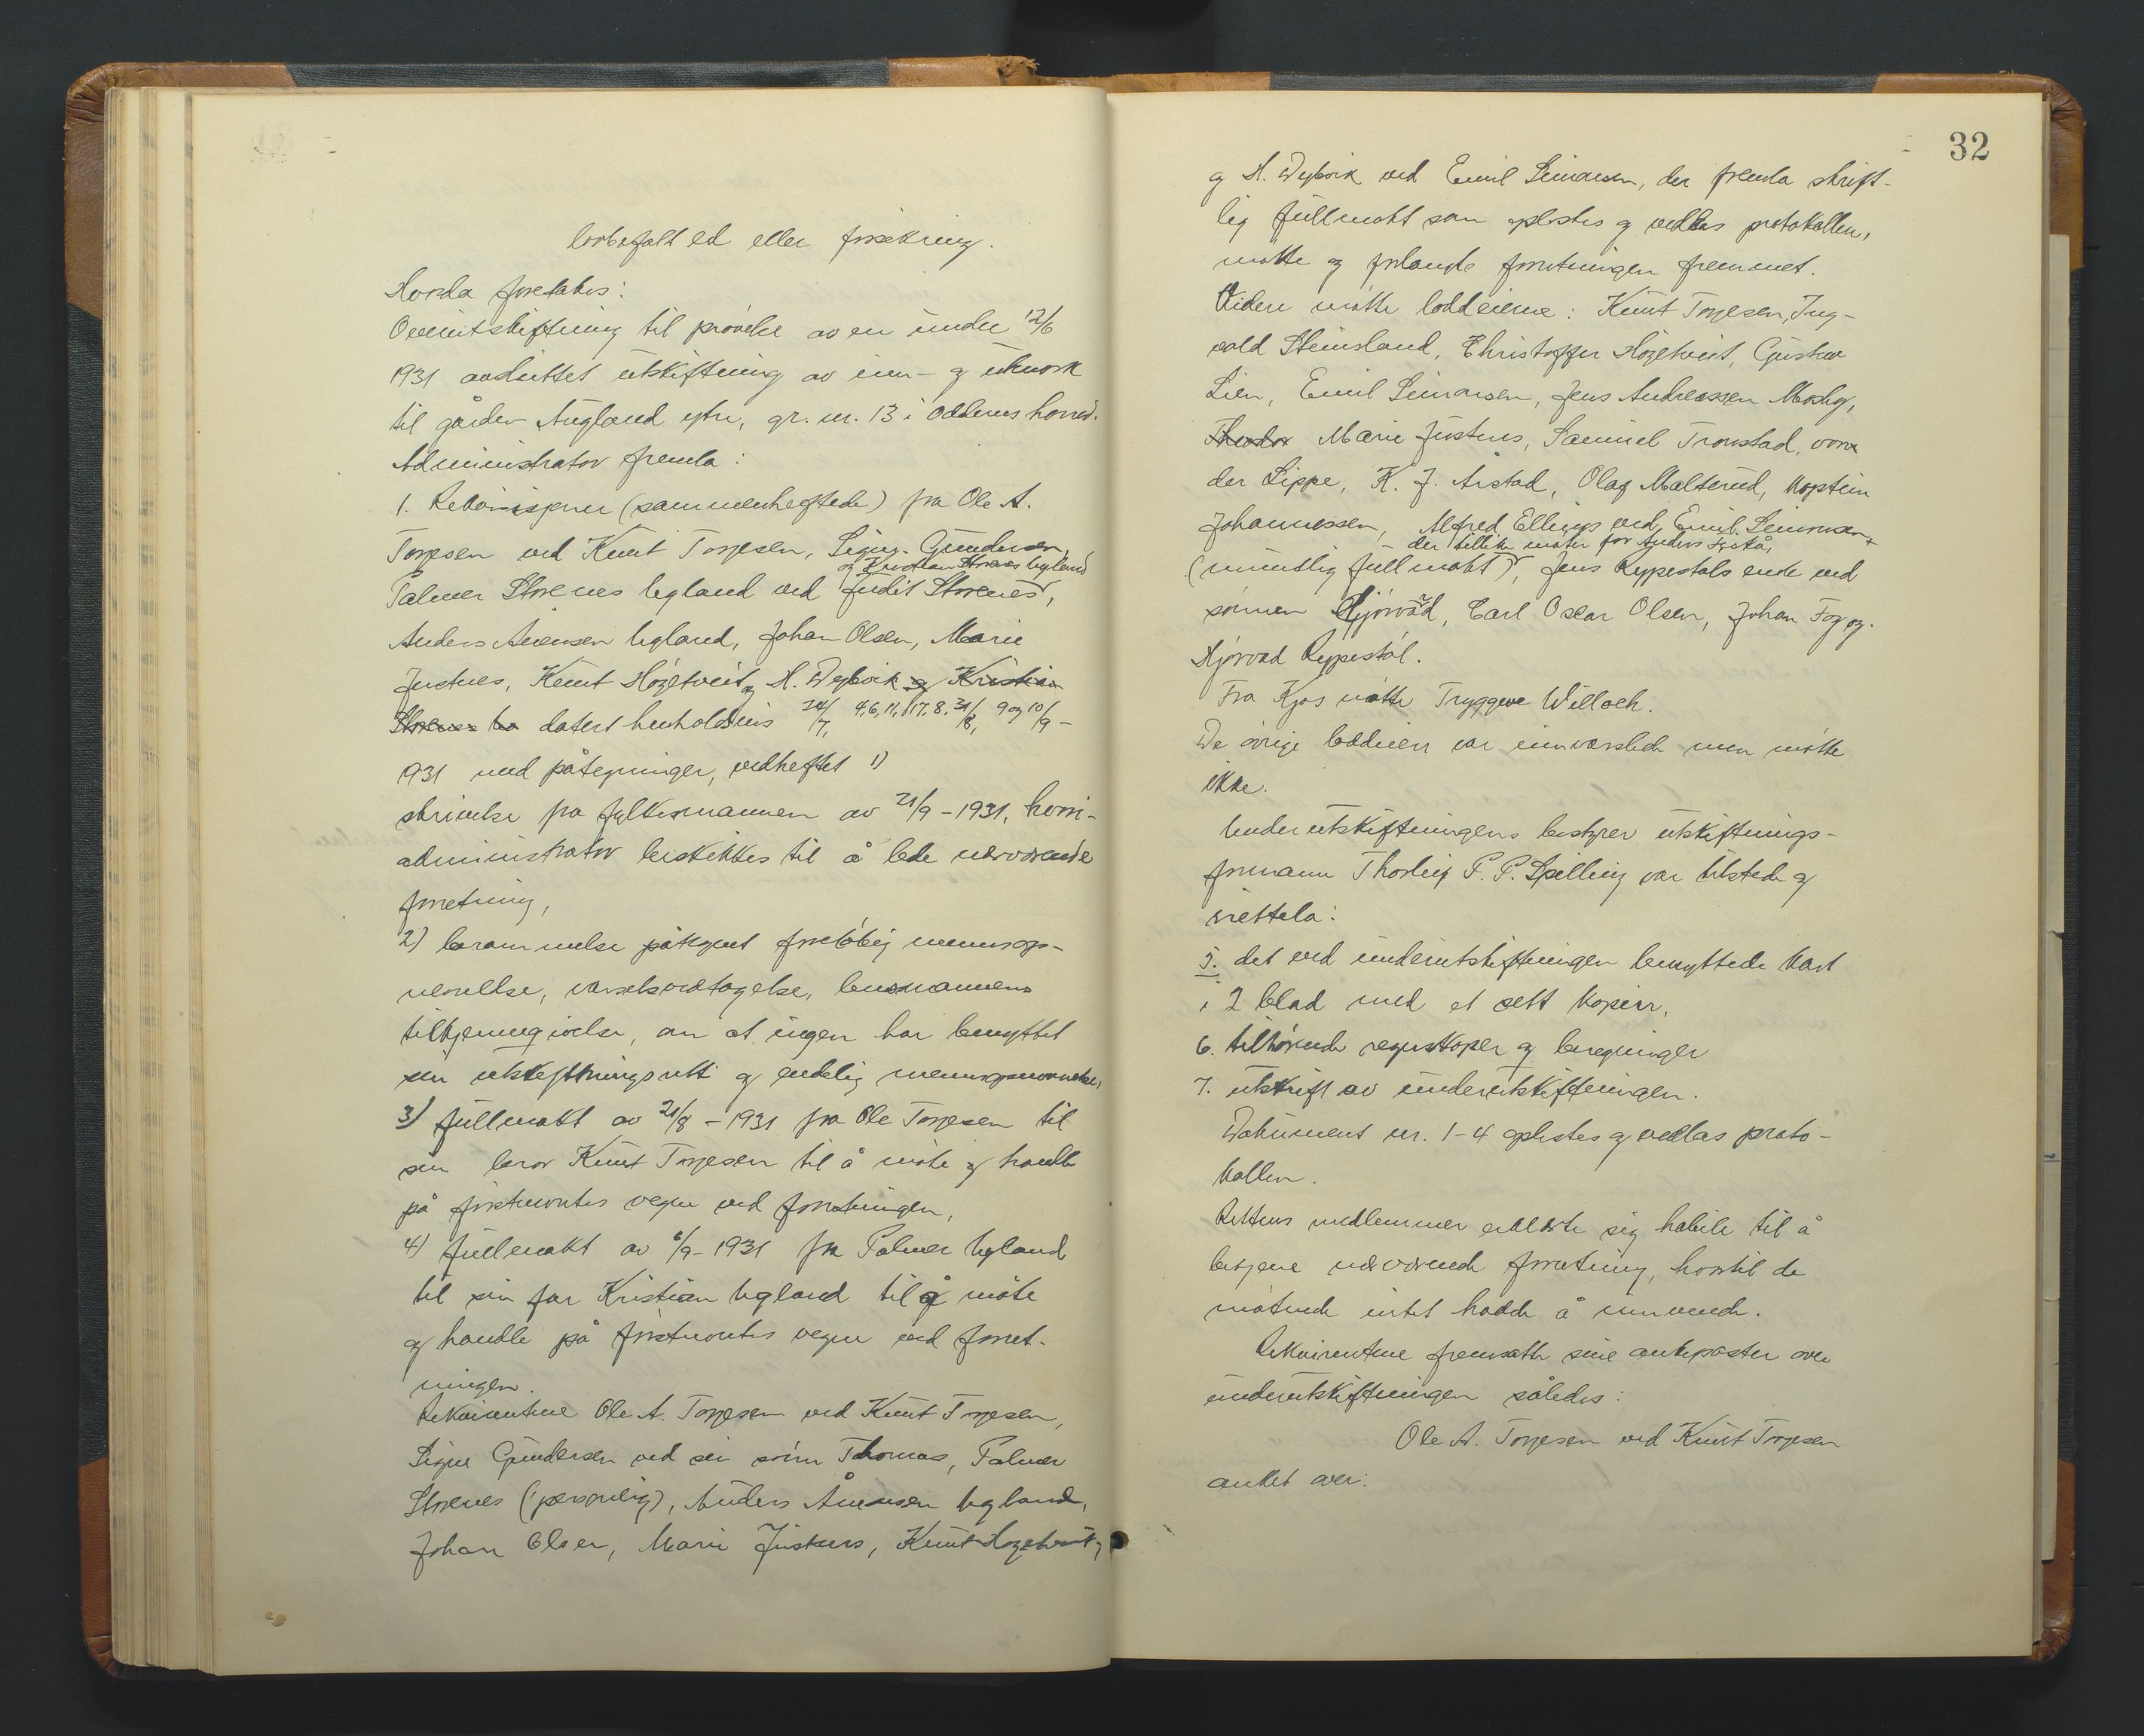 lovbefalt ed eller forsikring.
Hvorda foretakes:
Overutskiftning til prövelse av en under 12/6
1931 avsluttet utskiftning av inn- og utmark
til gården Augland ytre, gr. nr. 13 i Oddernes herred.
Administrator fremla:
1. Rekvisisjoner (sammenheftede) fra Ole A.
Torjesen ved Knut Torjesen, Signe Gundersen,
og Kristian Strenes Ugland
Palmer Strenes Ugland ved Judit Strenes,
Anders Aanensen Ugland, Johan Olsen, Marie
Justnes, Knut Högetveit og H. Dybvik og Kristian
Strenes datert henholdsvis 24/7, 4, 6, 11, 17, 8, 31/8, 9 og 10/9 -
1931 med påtegninger, vedheftet 1)
skrivelse fra fylkesmannen av 21/9 - 1931, hvori
administrator beskikkes til å lede nærværende
forretning,
2) berammelse påtegnet foreløbig mennsop-
nevnelse, varselsvedtagelse, lensmannens
tilkjennegivelse, om at ingen har benyttet
sin utskytningsrett og endelig mennsopnevnelse,
3) fullmakt av 21/8 - 1931 fra Ole Torjesen til
sin bror Knut Torjesen til å möte og handle
på förstnevntes vegne ved forretningen,
4) fullmakt av 6/9 - 1931 fra Palmer Ugland
til sin far Kristian Ugland til å möte
og handle på förstnevntes vegne ved forret-
ningen.
Rekvirentene Ole A. Torjesen ved Knut Torjesen,
Signe Gundersen ved sin sönn Thomas, Palmer
Strenes (personlig), Anders Ånensen Ugland,
Johan Olsen, Marie Justnes, Knut Högetveit,
32
og H. Dybvik ved Emil Seiversen, der fremla skrift-
lig fullmakt som oplestes og vedlas protokollen,
mötte og forlangte forretningen fremmet.
Videre mötte loddeierne: Knut Torjesen, Ing-
vald Steinsland, Christoffer Högetveit, Gustav
Lien, Emil Seiversen, Jens Andreassen Mosby,
Theodor Marie Justnes, Samuel Tronstad, von
der Lippe, K. J. Årstad, Olaf Malterud, kaptein
Johannessen, Alfred Ellings ved Emil Seiversen
- der tillike möter for Anders
(muntlig fullmakt), Jens Rypestøls enke ved
sönnen Hjörvard, Carl Oscar Olsen, Johan Fog og
Hjörvad Rypestöl.
Fra Kjos mötte Tryggve Willoch.
De övrige loddeiere var innvarslede men mötte
ikke.
Underutskiftningens bestyrer utskiftnings-
formann Thorleif P. P. Spilling var tilstede og
irettela:
5. det ved underutskiftningen benyttede kart
i 2 blad med et sett kopier,
6. tilhörende regnskaper og beregninger
7. utskrift av underutskiftningen.
Dokument nr. 1-4 oplestes og vedlas proto-
kollen.
Rettens medlemmer erklærte sig habile til å
betjene nærværende forretning, hvortil de
mötende intet hadde å innvende.
Rekvirentene fremsatte sine ankeposter over
underutskiftningen således:
Ole A. Torjesen ved Knut Torjesen
anket over: